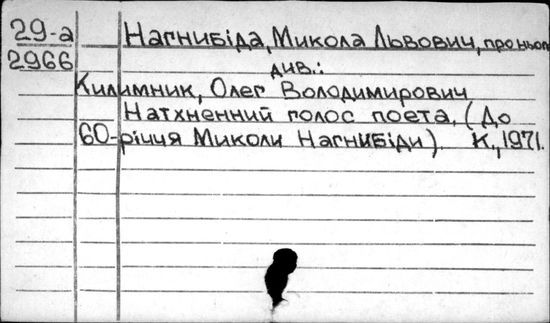 29-а Нагнибіда, Микола Львович, про нього
2966 див.:
Килимник, Олег Володимирович
Натхненний голос поета. (До
60-річчя Миколи Нагнибіди). К., 1971.